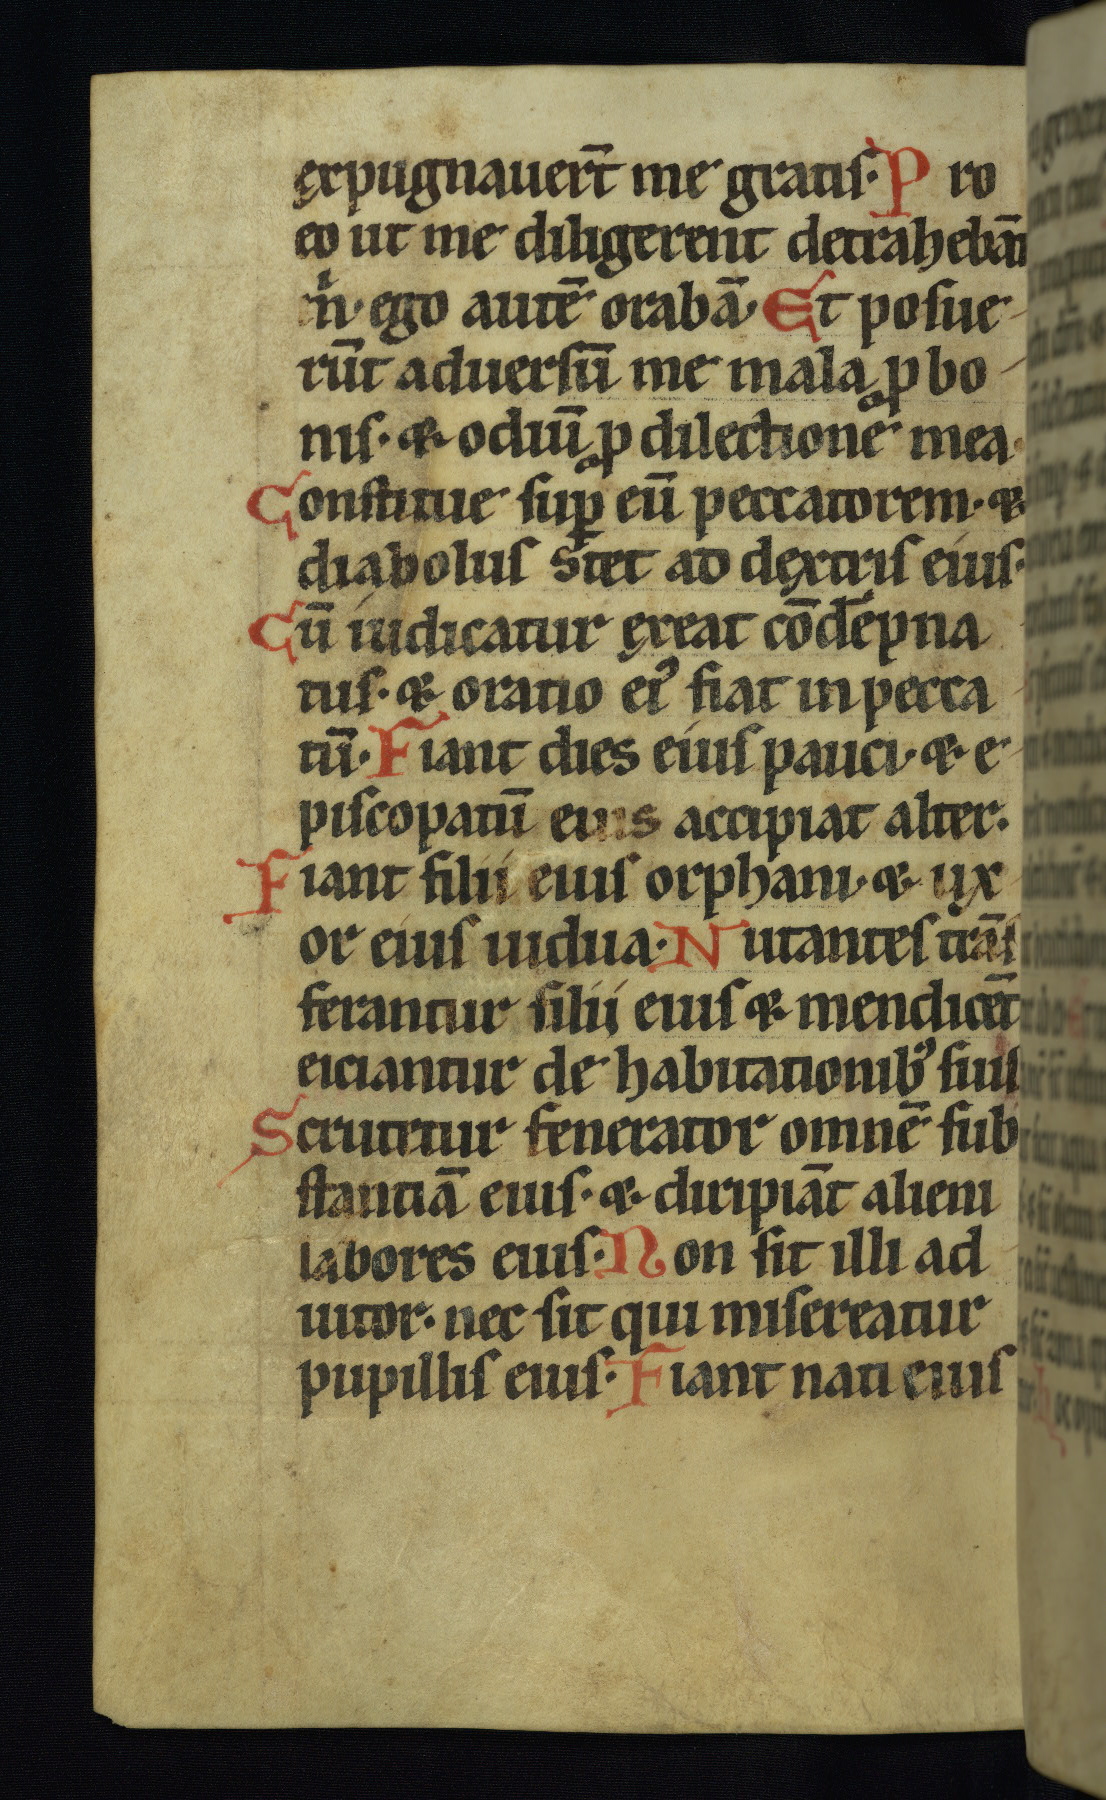 expugnauert̄ me gratis. Pro
eo ut me diligerent detrahebāt
m̊. ego autē orabā. Et posue
rūt aduersū me mala ꝓ bo
nis. & odiū ꝓ dilectionē mea
Constitue suꝑ eū peccatorem. &
diabolus stet ad dextris eius.
Cū iudicatur exeat cōdēpna
tus. & oratio ei᾽ fiat in pecca
tū. Fiant dies eius pauci. & e
piscopatū eius accipiat alter.
Fiant filii eius orphani. & ux
or eius uidua. Nutantes trās
ferantur filii eius & mendicēt
eiciantur de habitationib᾽ suis
Scrutetur fenerator omnē sub
stantiā eius. & diripiāt alieni
labores eius. Non sit illi ad
iutor. nec sit qui misereatur
pupillis eius. Fiant nati eius